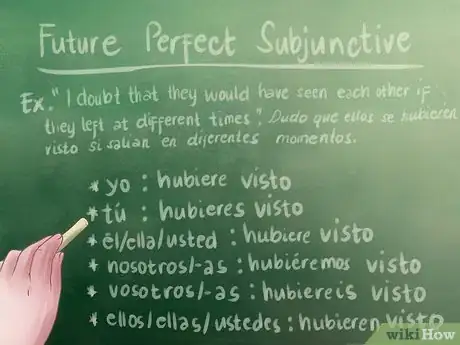 Future Perfect Subjunctive
Ex. "I doubt that they would have seen each other if
they left at different times". Dudo que ellos se hubieren
visto si salían en diferentes momentos.
* yo : hubiere visto
* tú : hubieres visto
* él/ella/usted : hubiere visto
* nosotros/-as : hubiéremos visto
* vosotros/-as : hubiereis visto
* ellos/ellas/ustedes : hubieren visto
wikiHow